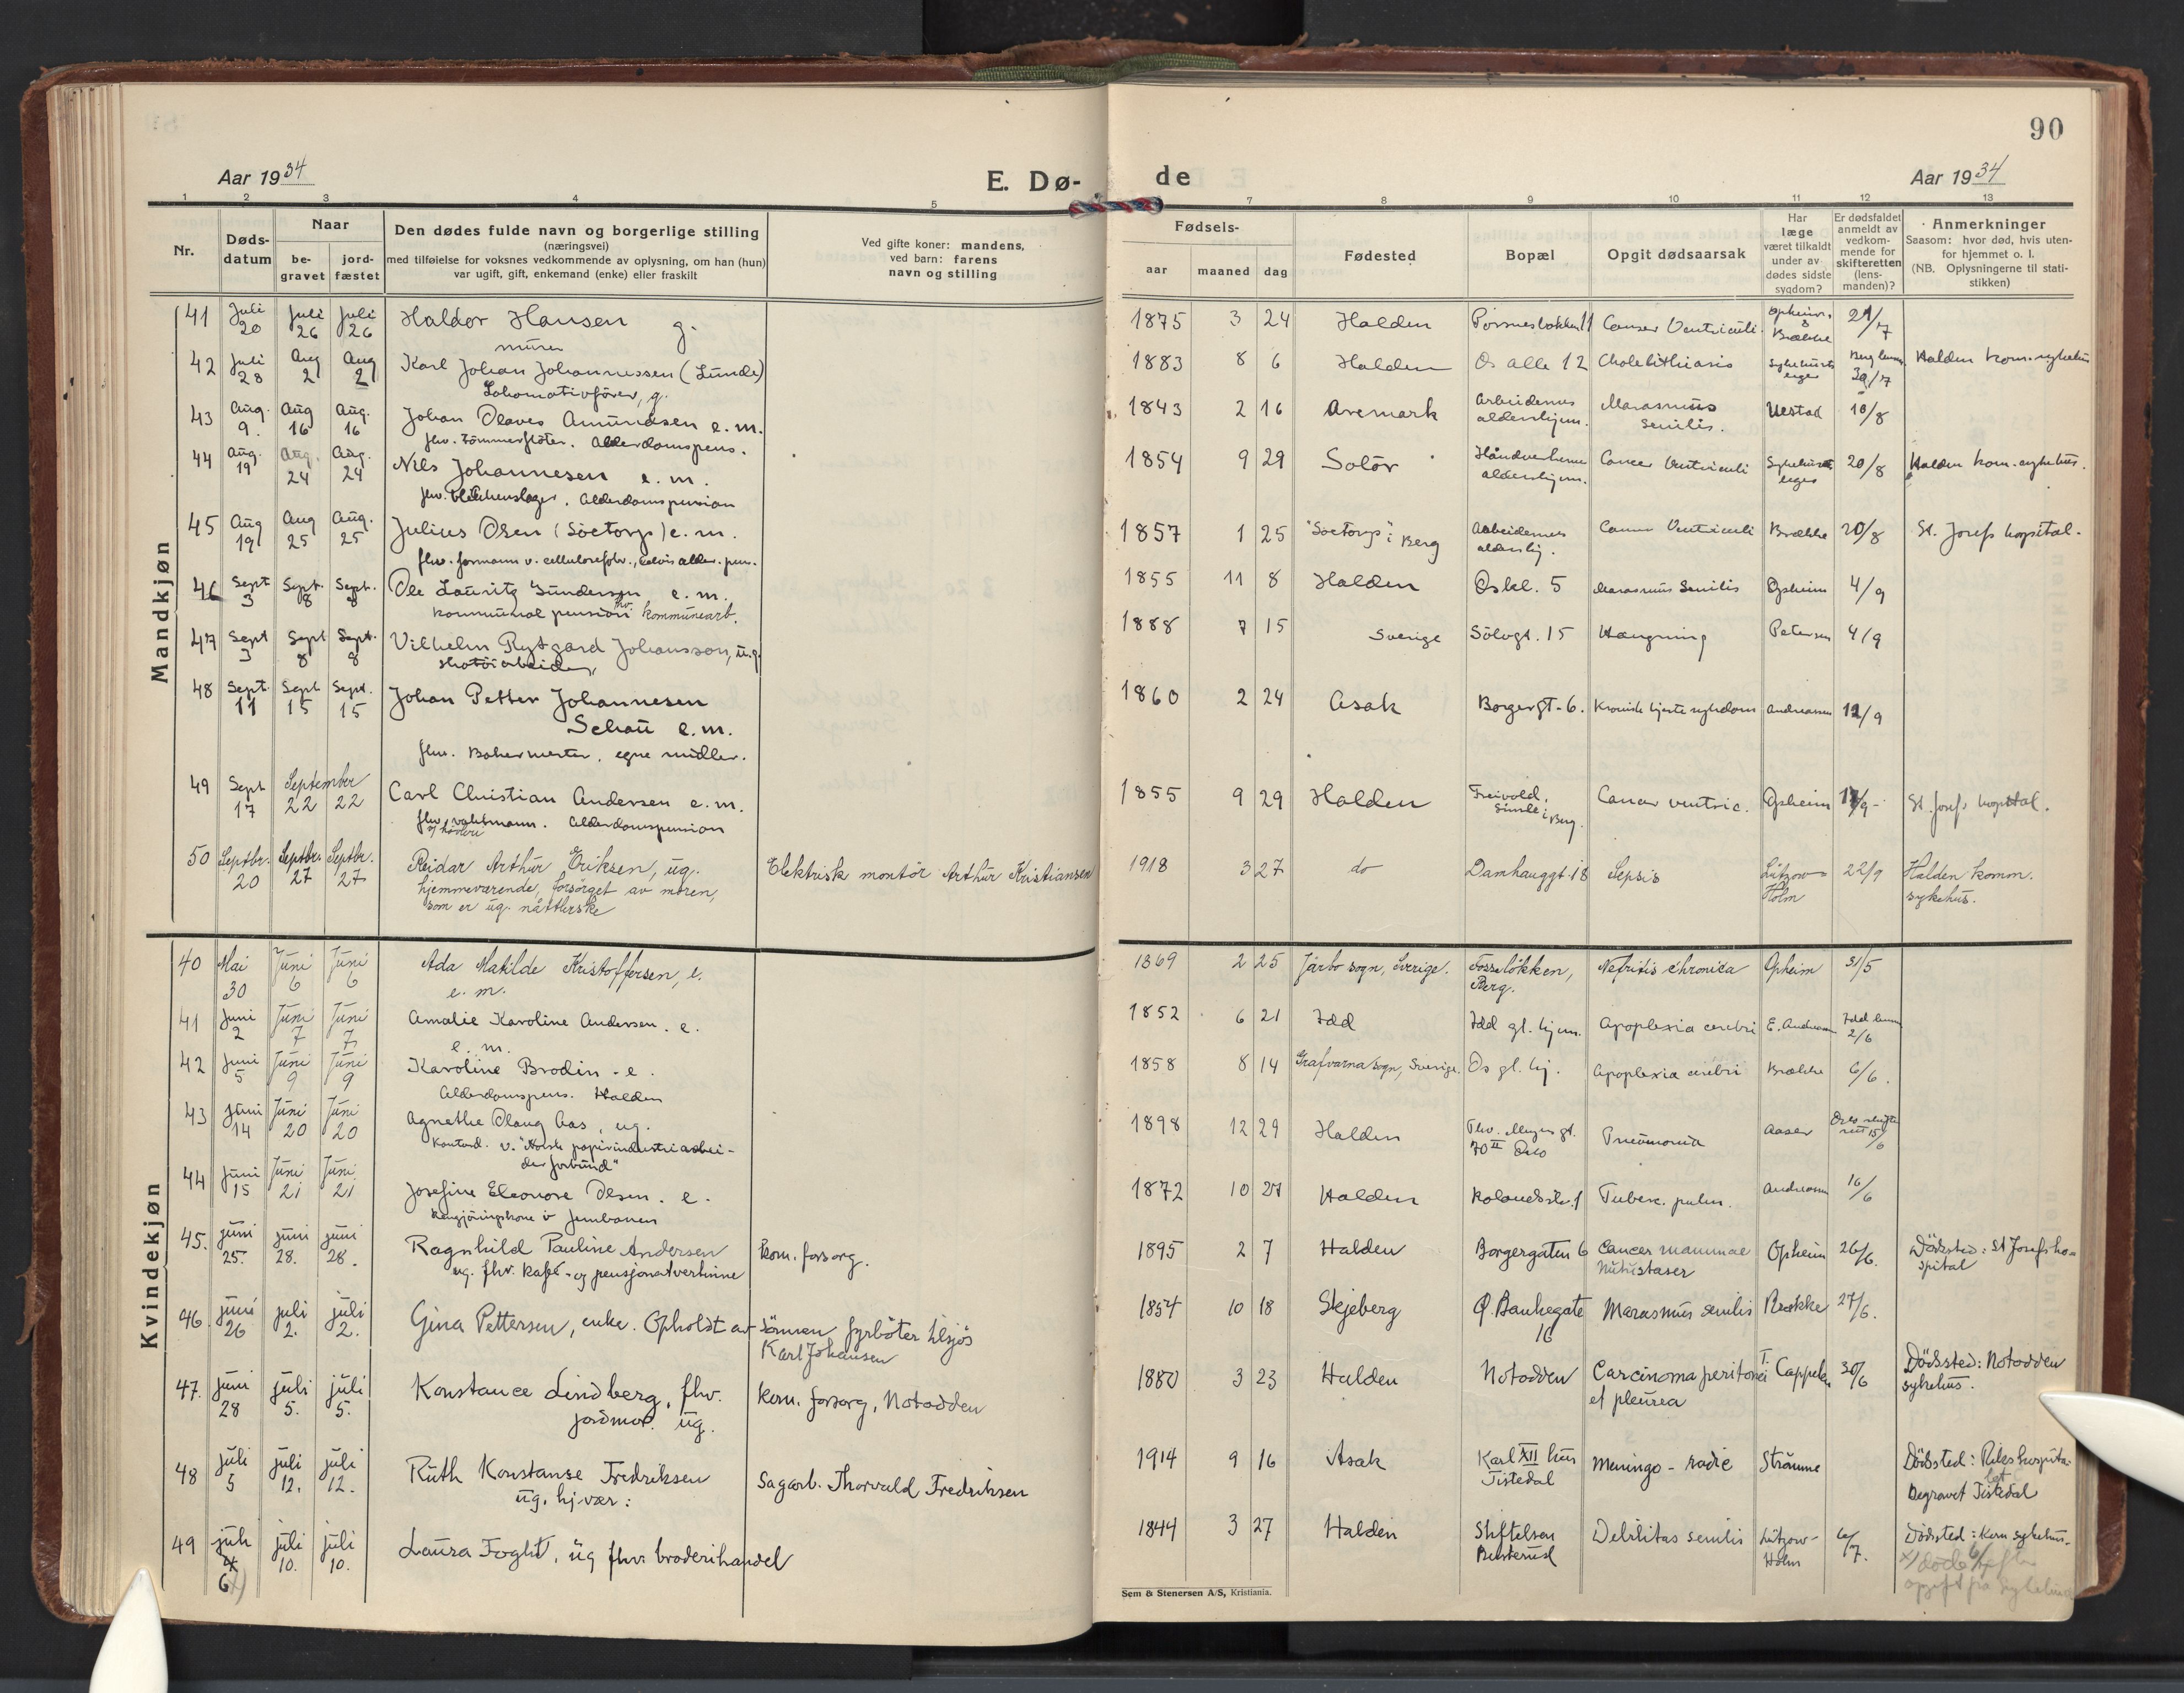 90
Aar 1934
E. Dø-
de
Aar 1934
1 2 3 4 5 7 8 9 10 11 12 13
Nr.
Døds-
datum
Naar
be-
gravet
jord-
fæstet
Den dødes fulde navn og borgerlige stilling
(næringsvei)
med tilføielse for voksnes vedkommende av oplysning, om han (hun)
var ugift, gift, enkemand (enke) eller fraskilt
Ved gifte koner: mandens,
ved barn: farens
navn og stilling
Fødsels-
aar maaned dag
Fødested
Bopæl
Opgit dødsaarsak
Har
læge
været tilkaldt
under av-
dødes sidste
sygdom?
Er dødsfaldet
anmeldt av
vedkom-
mende for
skifteretten
(lens-
manden)?
Anmerkninger
Saasom: hvor død, hvis uten-
for hjemmet o. l.
(NB. Oplysningerne til stati-
stikken)
Mandkjøn
41 Juli 20 Juli 26 Juli 26 Haldor Hansen g.
murer
1875 3 24 Halden Cancer Ventriculi Opheim & Brække 21/7
42 Juli 28 Aug 2 Aug 2 Karl Johan Johannessen (Lunde)
Lokomotivfører, g.
1883 8 6 Halden Os alle 12 Cholelithiasis Sykehusets læge Berg lensm. 30/7 Halden kom. sykehus
43 Aug. 9. Aug 16 Aug. 16 Johan Olaves Amundsen e. m.
fhv. tømmerfløter. Alderdomspens.
1843 2 16 Aremark Arbeidernes aldershjem. Marasmus senilis. Ustad 10/8
44 Aug. 19 Aug. 24 Aug. 24 Nils Johannesen e. m.
fhv. blikkenslager. Alderdomspension
1854 9 29 Solør Håndverkerne aldershjem. Cancer Ventriculi Sykehusets læge 20/8 Halden kom. sykehus.
45 Aug 19 Aug 25 Aug. 25 Julius Olsen (Sletorp) e. m.
fhv. formann v. cellulosefabr., delvis alder. pen.
1857 1 25 "Sletorp" i Berg Arbeidernes aldershj. Cancer Ventriculi Brække 20/8 St. Josefs hospital.
46 Sept 3 Sept. 8 Sept. 8 Ole Lauritz Gundersen e. m.
kommunal pension fhv. kommunearb.
1855 11 8 Halden Oskl. 5 Marasmus Senilis Opheim 4/9
47 Sept 3 Sept 8 Sept. 8 Vilhelm Rytgard Johansson, u.g.
skotøiarbeider
1888 7 15 Sverige Sølvgt. 15 Hængning Petersen 4/9
48 Sept. 11 Sept 15 Sept. 15 Johan Petter Johannesen
Schau e. m.
fhv. Bakermester, egne midler.
1860 2 24 Asak Borgergt. 6. Kronisk hjertesykdom Andreassen 12/9
49 Sept 17 September 22 22 Carl Christian Andersen e. m.
fhv. vaktmann. Alderdomspension
1855 9 29 Halden Freivold, Simle i Berg. Cancer ventric. Opheim 17/9 St. Josefs hospital.
50 Septbr. 20 Septbr. 27 Septbr. 27 Reidar Arthur Eriksen, ug. Elektrisk montør Arthur Kristiansen
hjemmeværende, forsørget av moren,
som er ug. nåtlerske
1918 3 27 do Damhauggt. 18 Sepsis Lützow-Holm 22/9 Halden komm. sykehus.
Kvindekjøn
40 Mai 30 Juni 6 Juni 6 Ada Matilde Kristoffersen, e.
e. m.
1869 2 25 Järbo sogn, Sverige. Fosseløkken, Berg. Nefritis chronica Opheim 31/5
41 Juni 2 Juni 7 Juni 7 Amalie Karoline Andersen. e.
e. m.
1852 6 21 Idd Idd gl. hjem. Apoplexia cerebri E. Andreassen Idd lensm 2/6
42 Juni 5 Juni 9 Juni 9 Karoline Brodin - e.
Alderdomspens. Halden
1858 8 14 Grafvarna sogn, Sverige. Os gl. hj. Apoplexia cerebri Brække 6/6.
43 Juni 14 Juni 20 Juni 20 Agnethe Olaug Aas, ug.
Kontord. v. "Norsk papirindustriarbei-
derforbund"
1898 12 29 Halden Thv. Meyers gt. 70 II Oslo Pneumonia Aaser Oslo skifterett 15/6
44 Juni 15 Juni 21 Juni 21 Josefine Eleonore Olsen. e.
Rengjøringskone v jernbanen
1872 10 27 Halden Tuberc. pulm. Andreassen 16/6
45. juni 25. juni 28. juni 28. Ragnhild Pauline Andersen kom. forsorg.
ug. fhv. kafé- og pensjonatvertinne
1895 2 7 Halden Borgergaten 6 Cancer mammae Opheim 26/6. Dödsted: St Josefsho-
spital
46. juni 26 juli 2. juli 2. Gina Pettersen, enke. Opholdt av sönnen fyrböter tilsjös
Karl Johansen
1854 10 18 Skjeberg O. Bankegate 16 Marasmus senilis Brække 27/6.
47. juni 28 juli 5. juli 5. Konstance Lindberg, fhv. kom. forsorg, Notodden
jordmor. ug.
1880 3 23 Halden Notodden Carcinoma peritonei T. Cappelen 30/6 Dödsted: Notodden
et pleurea sykehus.
48 juli 5 juli 12. juli 12. Ruth Konstanse Fredriksen Sagarb. Thorvald Fredriksen
ug. hj. vær:
1914 9 16 Asak Karl XII hus Tistedal Strömme Dödsted: Rikshospita-
let
Begravet Tistedal
49 juli 4 6 x) juli 10. juli 10. Laura Foght, ug fhv: broderihandel
1844 3 27 Halden Stiftelsen Debilitas senilis Lützow-Holm 6/7. Dödsted: Kom sykehus.
x) døde 6/7 flg
opgift fra sykehuset
Sem & Stenersen A/S, Kristiania.